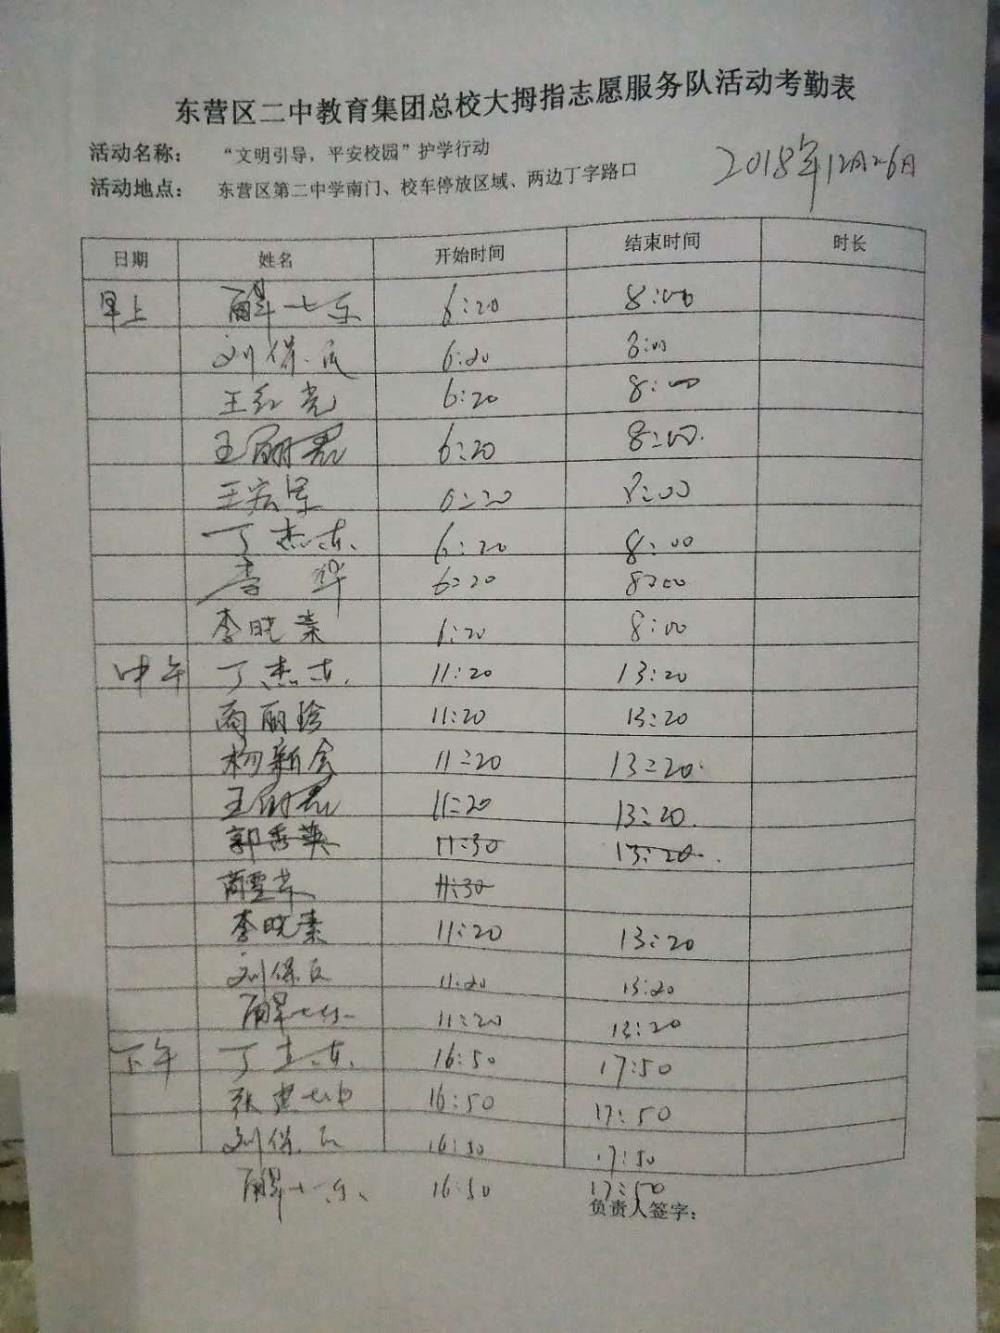 东营区二中教育集团总校大拇指志愿服务队活动考勤表
活动名称： “文明引导，平安校园”护学行动
2018年12月26日
活动地点： 东营区第二中学南门、校车停放区域、两边丁字路口
日期 姓名 开始时间 结束时间 时长
早上 6:20 8:00
刘保民 6:20 8:00
王红亮 6:20 8:00
王丽君 6:20 8:00
王宏军 6:20 8:00
丁杰东 6:20 8:00
李华 6:20 8:00
李晓素 6:20 8:00
中午 丁杰东 11:20 13:20
丽珍 11:20 13:20
杨新会 11:20 13:20
王丽君 11:20 13:20
郭秀英 11:30 13:20
商雪芹 11:30
李晓素 11:20 13:20
刘保民 11:20 13:20
11:20 13:20
下午 丁杰东 16:50 17:50
张 16:50 17:50
刘保民 16:50 17:50
16:50 17:50
负责人签字：